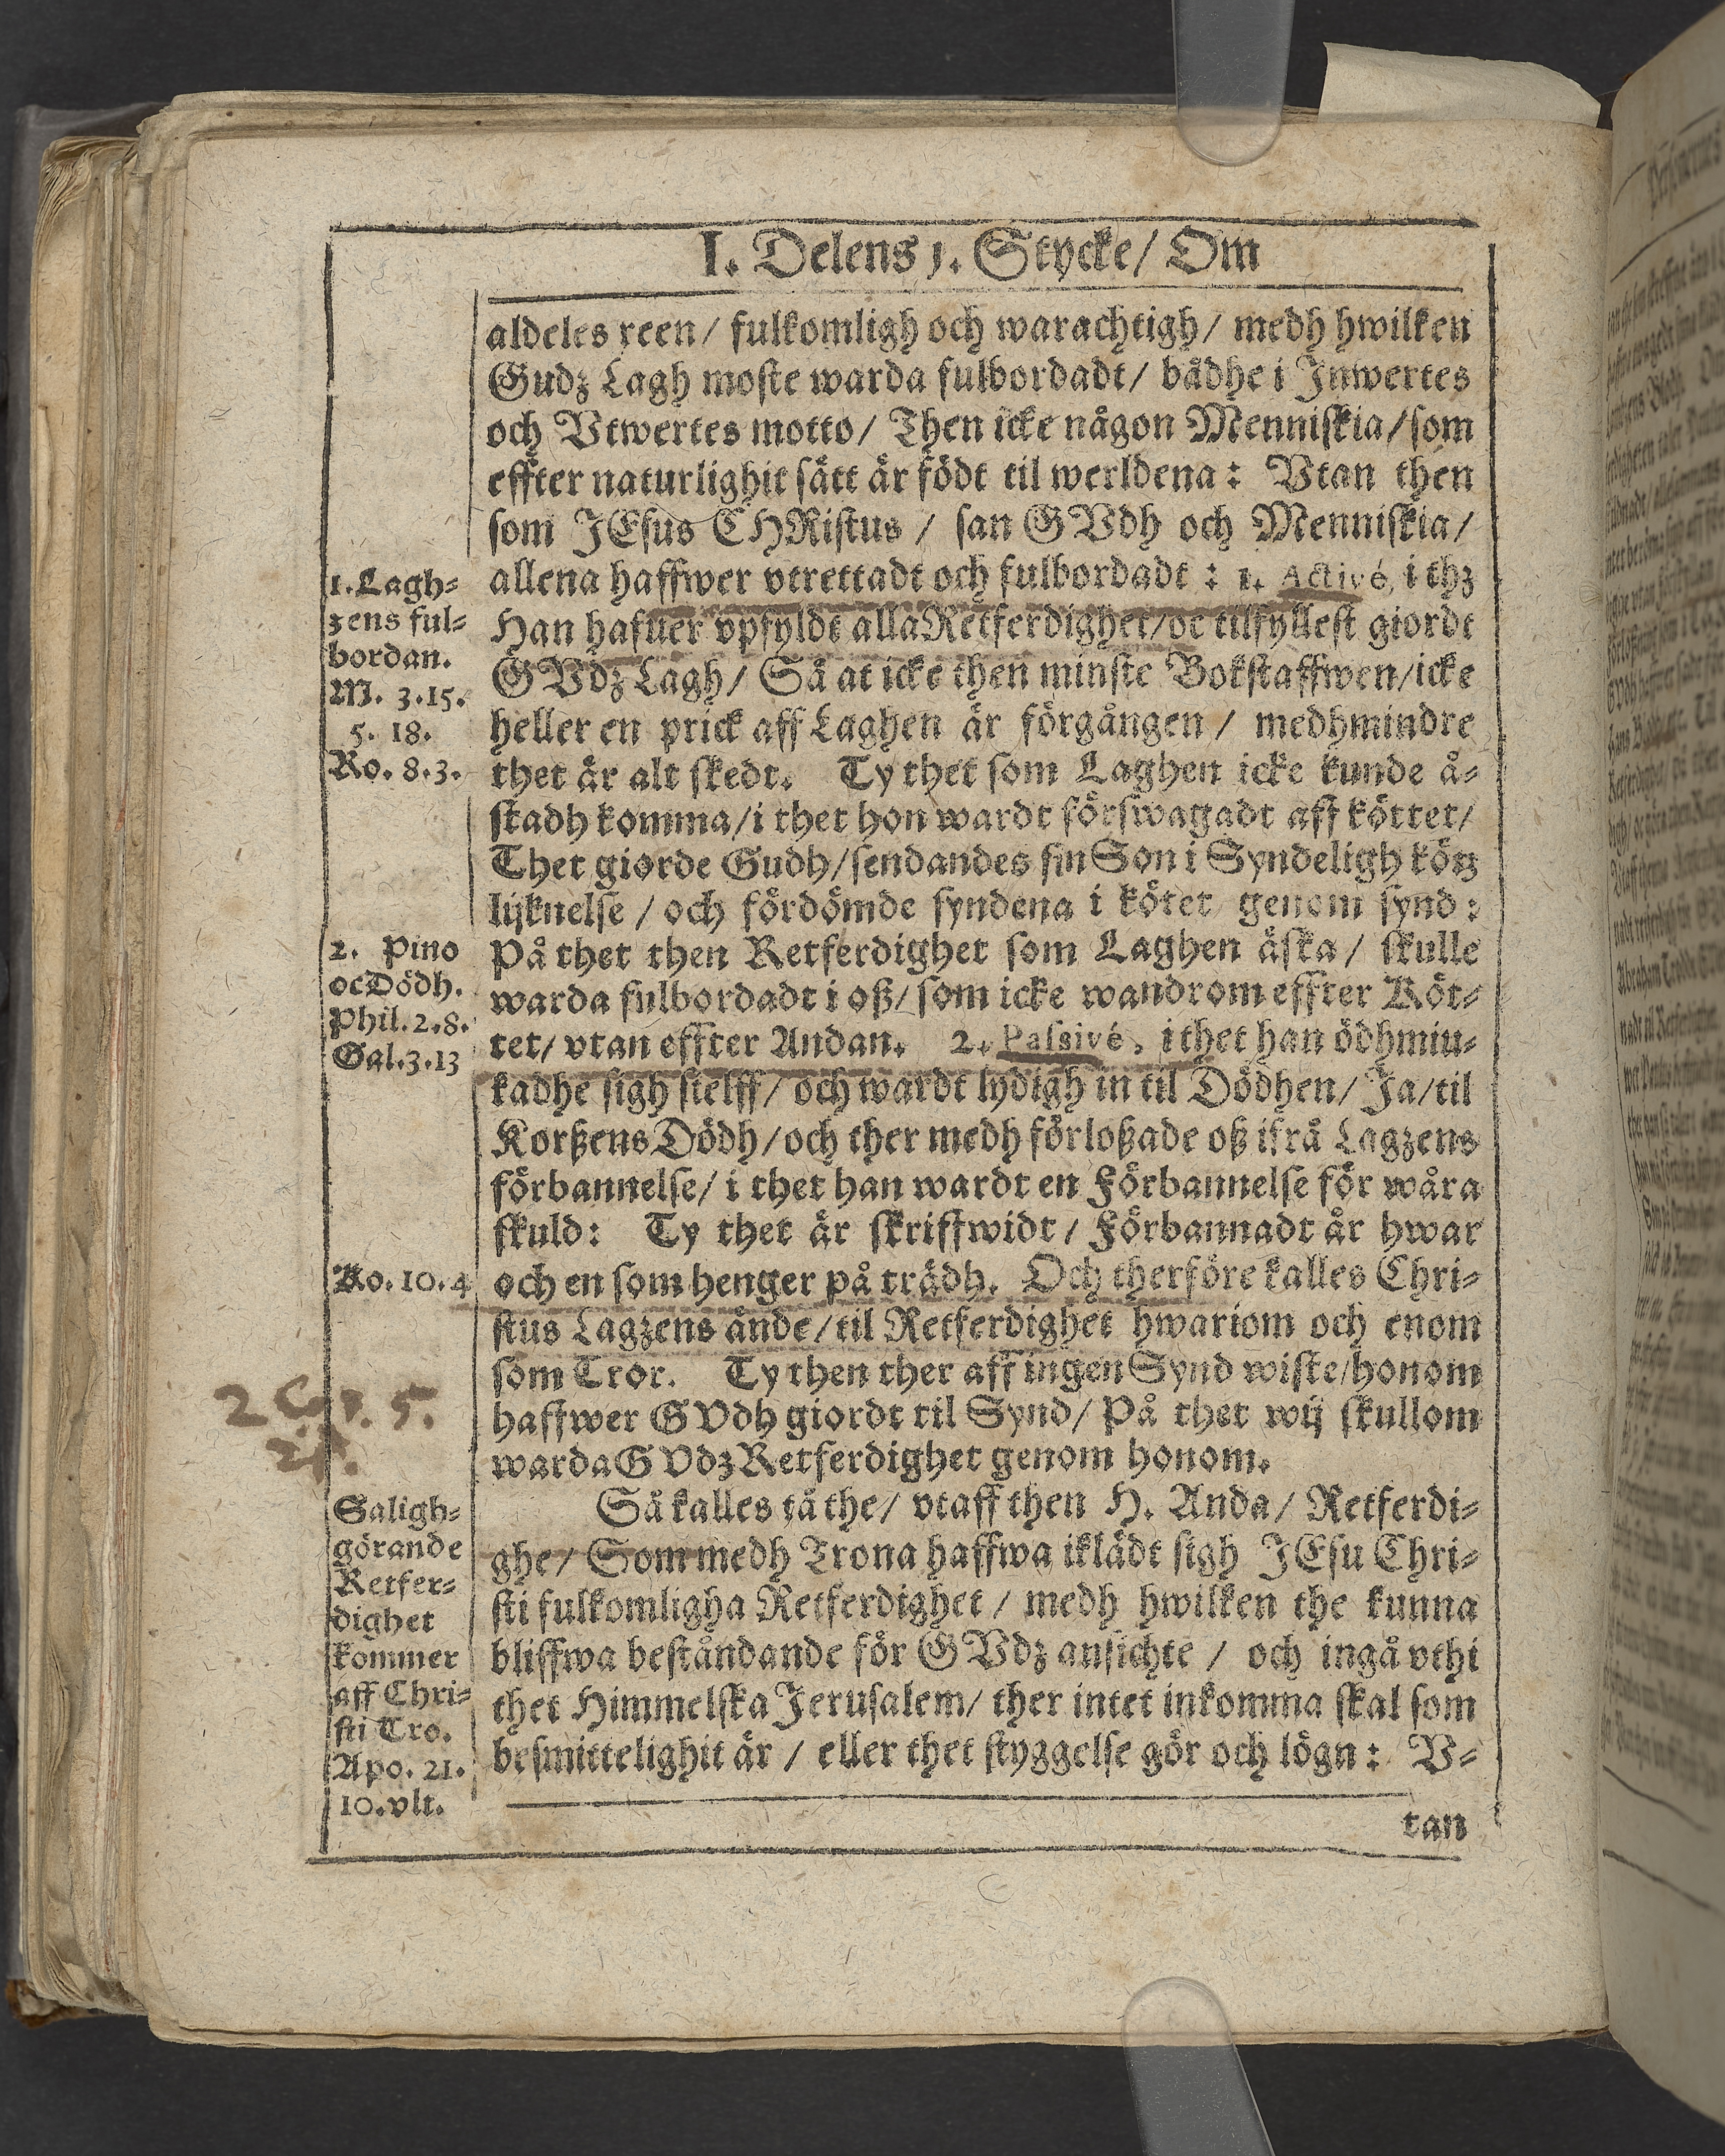 I. Delens 1. Stycke/ Om
aldeles reen/ fulkomligh och warachtigh/ medh hwilken
Gudz Lagh moste warda fulbordadt/ bådhe i Inwertes
och Vtwertes motto/ Then icke någon Menniskia/ som
effter naturlighit sätt är födt til werldena: Vtan then
som JEsus CHRistus / san GVdh och Menniskia/
allena haffwer vtrettadt och fulbordadt: 1. Activé, i thz
Han hafuer vpfyldt alla Retferdighet/ oc tilfyllest giordt
GVdz Lagh/ Så at icke then minste Bokstaffwen/ icke
heller en prick aff Laghen är förgången / medhmindre
thet är alt skedt. Ty thet som Laghen icke kunde å-
stadh komma/ i thet hon wardt förswagadt aff köttet/
Thet giorde Gudh/ sendandes sin Son i Syndeligh kötz
lijknelse / och fördömde syndena i kötet genom synd:
På thet then Retferdighet som Laghen äska/ skulle
warda fulbordadt i oß/ som icke wandrom effter Köt-
tet/ vtan effter Andan. 2. Passivé, i thet han ödhmiu-
kadhe sigh sielff/ och wardt lydigh in til Dödhen/ Ja/ til
Korßens Dödh/ och ther medh förloßade oß ifrå Lagzens
förbannelse/ i thet han wardt en Förbannelse för wåra
skuld: Ty thet är skriffwidt/ Förbannadt är hwar
och en som henger på trädh. Och therföre kalles Chri-
stus Lagzens ände/ til Retferdighet hwariom och enom
som Tror. Ty then ther aff ingen Synd wiste/ honom
haffwer GVdh giordt til Synd/ På thet wij skullom
warda GVdz Retferdighet genom honom.
Så kalles tå the/ vtaff then H. Anda/ Retferdi-
ghe/ Som medh Trona haffwa iklädt sigh JEsu Chri-
sti fulkomligha Retferdighet / medh hwilken the kunna
bliffwa beståndande för GVdz ansichte / och ingå vthi
thet Himmelska Jerusalem/ ther intet inkomma skal som
besmittelighit är / eller thet styggelse gör och lögn: V-
tan
1. Lagh-
zens ful-
bordan.
M. 3.15.
5. 18.
Ro. 8.3.
2. Pino
oc Dödh.
Phil. 2.8.
Gal. 3.13
Ro. 10.4
2 Cor. 5.
21.
Saligh-
görande
Retfer-
dighet
kommer
aff Chri-
sti Tro.
Apo. 21.
10. vlt.